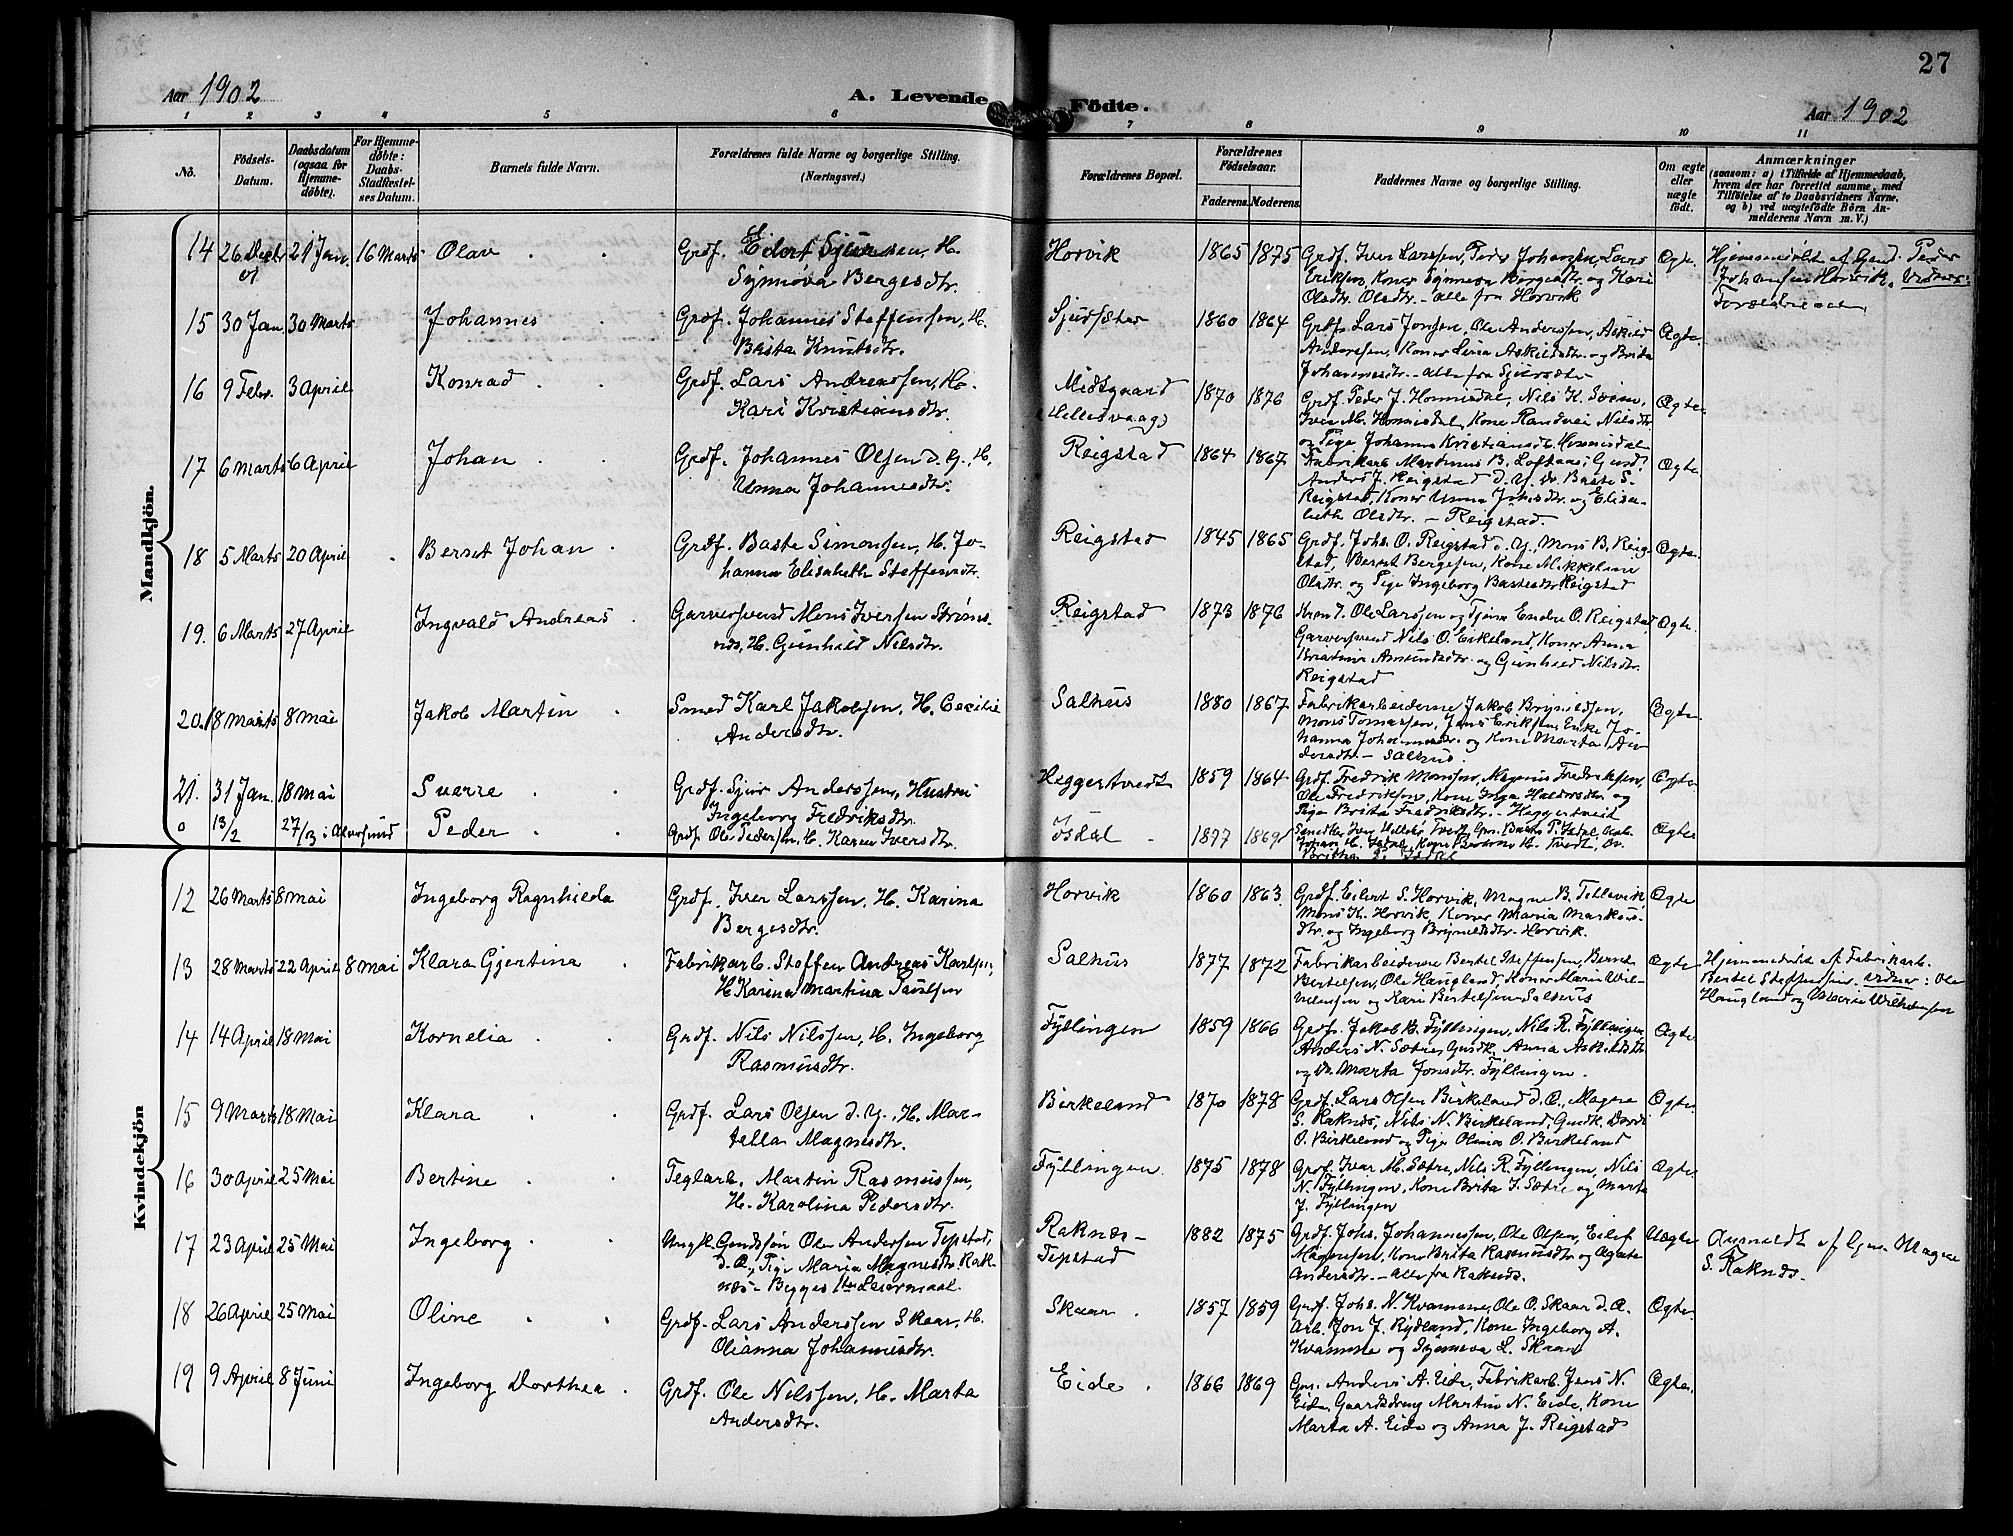 27
Aar 1902
A. Levende Födte.
Aar 1902
1 2 3 4 5 6 7 8 9 10 11
No.
Födsels-Datum.
Daabsdatum (ogsaa for Hjemme-döbte).
For Hjemme-döbte: Daabs-Stadfæstel-ses Datum.
Barnets fulde Navn.
Forældrenes fulde Navne og borgerlige Stilling.
(Næringsvei.)
Forældrenes Bopæl.
Forældrenes Födselsaar.
Faderens. Moderens.
Faddernes Navne og borgerlige Stilling.
Om ægte eller uægte födt.
Anmærkninger
(saasom: a) i Tilfælde af Hjemmedaab,
hvem der har forrettet samme, med
Tilföielse af to Daabsvidners Navne.
og b) ved uægtefödte Börn An-
melderens Navn m. V.)
Mandkjön.
14 26 Decbr 01 21 Jan. 16 Marts Olav Grdf. Eilert Sjursen, H. Synnøva Bergesdtr. Horvik 1865 1875 Grdf. Iver Larssen, Peder Johansen, Lars
Eriksen, Koner Synneva Borgesdtr. og Kari
Olsdtr. Olsdtr. - alle fra Horvik Ægte. Hjemmedøbt af Gmd. Peder
Johansen Horvik. Vidner:
Forældrene
15 30 Jan. 30 Marts Johannes Grdf. Johannes Steffensen, H. Basta Knutsdtr. Sjursæter 1860 1864 Grdf. Lars Jonsen, Ole Anderssen, Askild
Anderssen, Koner Sina Askildsdtr. og Brita
Johannesdtr. - alle fra Sjursæter Ægte.
16 9 Febr. 3 April Konrad Grdf. Lars Andreassen, H. Kari Kristiansdtr. Midtgaard (Hellesvaag) 1870 1876 Grdf. Peder J. Hommisdal, Nils K.
Iver M. Hommisdal, Kone Randvei Nilsdtr.
og Pige Johanna Kristiansdtr. Hommisdal Ægte.
17 6 Marts 6 April Johan Grdf. Johannes Olsen d. y., H. Unna Johannesdtr. Reigstad 1864 1867 Fabrikarb. Martinus B. Loftaas, Gmd.
Anders J. Reigstad d. Y. Baste S.
Reigstad, Koner Unna og Elisa-
beth Olsdtr. - Reigstad. Ægte.
18 5 Marts 20 April Bernt Johan Grdf. Baste Simonsen, H. Jo-hanna Elisabeth Steffensdtr. Reigstad 1845 1865 Grdf. Johs. O. Reigstad d. Y., Mons B. Reig-
stad, Bernt Bergesen, Kone Mikkeline
Olsdtr. og Pige Ingeborg Bastesdtr. Reigstad Ægte.
19. 6 Marts 27 April Ingvald Andreas Garversvend Mons Iversen Strøms-næs, H. Gunhild Nilsdtr. Reigstad 1873 1876 Ole Larssen og Endre O. Reigstad
Garversvend Nils O. Eikeland, Koner Anna
Kristina Amundsdtr. og Gunhild Nilsdtr.
Reigstad Ægte.
20. 18 Marts 8 Mai Jakob Martin Smed Karl Jakobsen, H. Cecilie Andersdtr. Salhus 1880 1867 Fabrikarbeiderne Jakob Brynildsen,
Mons Tomassen, Jens Eriksen, Enke Jo-
hanna Johannesdtr. og Kone Marta An-
dersdtr. - Salhus. Ægte.
21. 31 Jan. 18 Mai Sverre Grdf. Sjur Anderssen, Hustru Ingeborg Fredriksdtr. Heggertveit 1859 1864 Grdf. Fredrik Monssen, Magnus Fredriksen,
Ole Fredriksen, Kone Inga Haldorsdtr. og
Pige Brita Fredriksdtr. - Heggertveit Ægte
0 13/2 27/3 i Alversund Peder Grdf. Ole Pedersen, H. Karen Iversdtr. Isdal 1877 1869 Ægte
Kvindekjön
12 26 Marts 8 Mai Ingeborg Ragnhilda Grdf. Iver Larssen, H. Karina Bergesdtr. Horvik 1860 1863. Grdf. Eilert S. Horvik, Magne B. Tellevik
Mons K. Horvik, Koner Maria Markus-
dtr. og Ingeborg Brynildsdtr. Horvik. Ægte
13 28 Marts 22 April 8 Mai Klara Gjertina Fabrikarb. Steffen Andreas Karlsen, H. Karina Martina Paulsen Salhus 1877 1872 Fabrikarbeiderne Bertel Steffensen, Bernt
Bertelsen, Ole Haugland, Koner Marie Wil-
helmsen og Kari Bertelsen Salhus Ægte Hjemmedøbt af Fabrikarb.
Bertel Steffensen. Vidner: Ole
Haugland og Marie Wilhelmsen
14 14 April 18 Mai Kornelia Grdf. Nils Nilssen, H. Ingeborg Rasmusdtr. Fyllingen 1859 1866 Grdf. Jakob H. Fyllingen, Nils R. Fyllingen,
Anders N. Sætre, Gmdk. Anna Askildsdtr.
og Marta Jonsdtr. Fyllingen. Ægte
15 9 Marts 18 Mai Klara Grdf. Lars Olsen d. Y., H. Mar-tella Magnesdtr. Birkeland 1870 1878 Grdf. Lars Olsen Birkeland d. Æ., Magne
S. Raknes, Nils N. Birkeland, Gmdk. Dorde
O. Birkeland og Pige Olina O. Birkeland Ægte
16 30 April 25 Mai Bertine Teglarb. Martin Rasmussen, H. Karolina Pedersdtr. Fyllingen 1875 1878 Grdf. Ivar M. Sætre, Nils R. Fyllingen, Nils
N. Fyllingen, Kone Brita I. Sætre og Marta
J. Fyllingen Ægte
17 23 April 25 Mai Ingeborg Ungk. Gmdssøn Ole Andersen Tepstad, d. Æ., Pige Maria Magnesdtr. Rak-næs. Begges 1ste Leiermaal. Raknæs-Tepstad 1882 1875 Grdf. Johs. Johannessen, Ole Olsen, Eilef
Magnesen, Kone Brita Rasmusdtr. og Agate
Andersdtr. - alle fra Raknæs. Uægte Anmeldt af Gmd. Magne
S. Raknæs.
18 26 April 25 Mai Oline Grdf. Lars Anderssen Skaar, H. Olianna Johannesdtr. Skaar 1857 1859 Grdf. Johs. N. Kvamme, Ole O. Skaar d. Æ.
Arb. Jon J. Rydland, Kone Ingeborg A.
Kvamme og Synneva L. Skaar Ægte.
19 9 April 8 Juni Ingeborg Dorthea Grdf. Ole Nilssen, H. Marta Andersdtr. Eide 1866 1869 Gm. Anders A. Eide, Fabrikarb. Jens N.
Eide, Gaardsdreng Martin N. Eide, Kone
Marta A. Eide og Anna J. Reigstad Ægte.